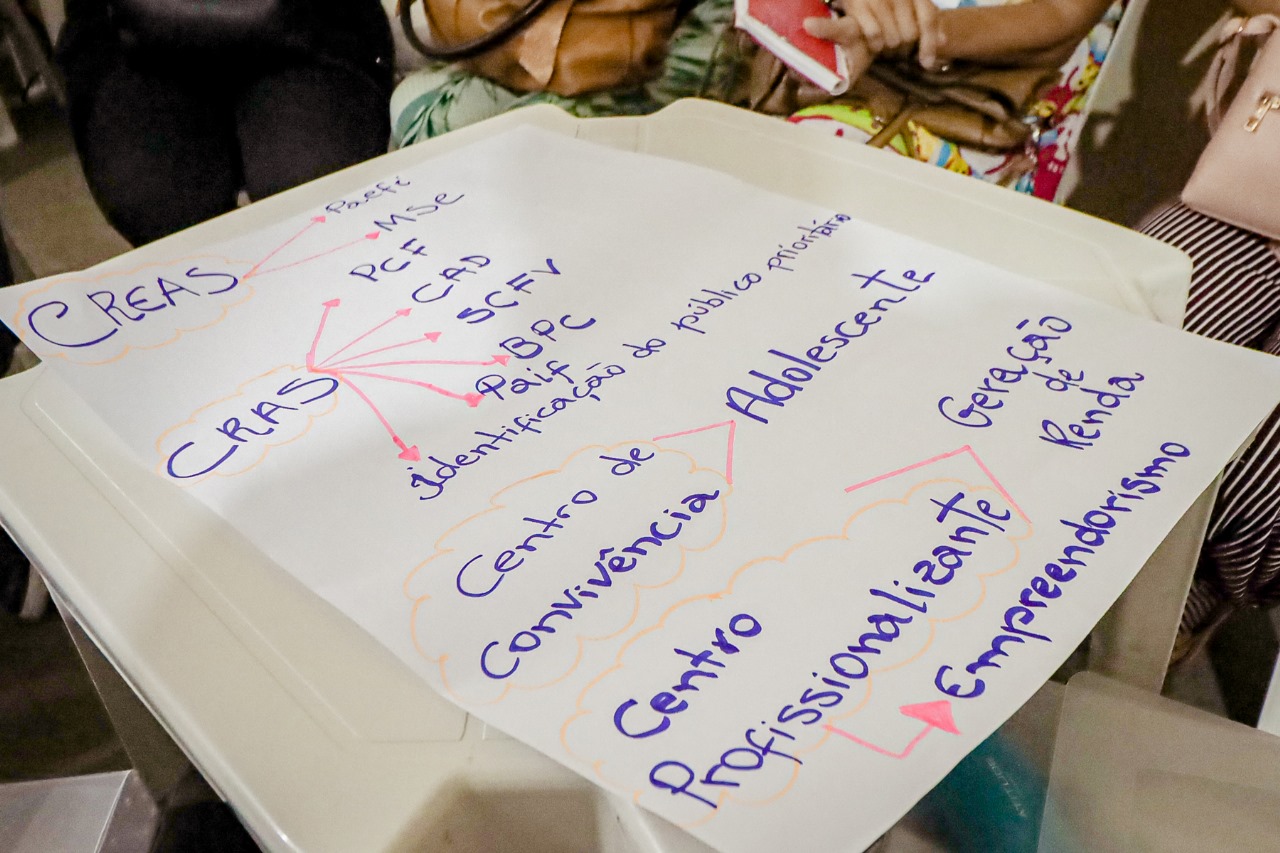 CREAS
Paefi
MSE
CRAS
PCF
CAD
SCFV
BPC
Paif
Identificação do público prioritário
Centro de
Convivência
Adolescente
Centro
Profissionalizante
Geração
de
Renda
Empreendorismo